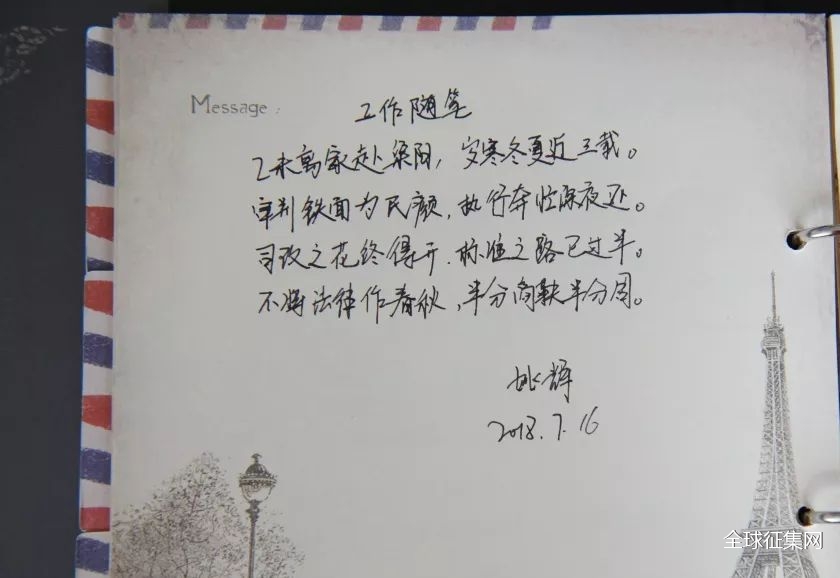 Message:
工作随笔
乙未离家赴梁阳，岁寒冬夏近三载。
审判铁面为民颜，执行奔忙深夜还。
司改之花终得开，标准之路已过半。
不将法律作春秋，半分商鞅半分周。
姚辉
2018.7.16
全球征集网